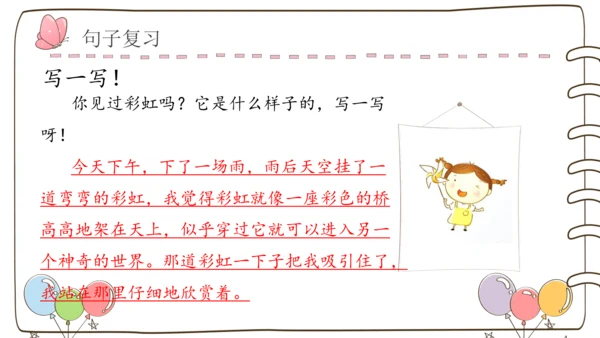 句子复习
写一写！
你见过彩虹吗？它是什么样子的，写一写
呀！
今天下午，下了一场雨，雨后天空挂了一
道弯弯的彩虹，我觉得彩虹就像一座彩色的桥
高高地架在天上，似乎穿过它就可以进入另一
个神奇的世界。那道彩虹一下子把我吸引住了，
我站在那里仔细地欣赏着。